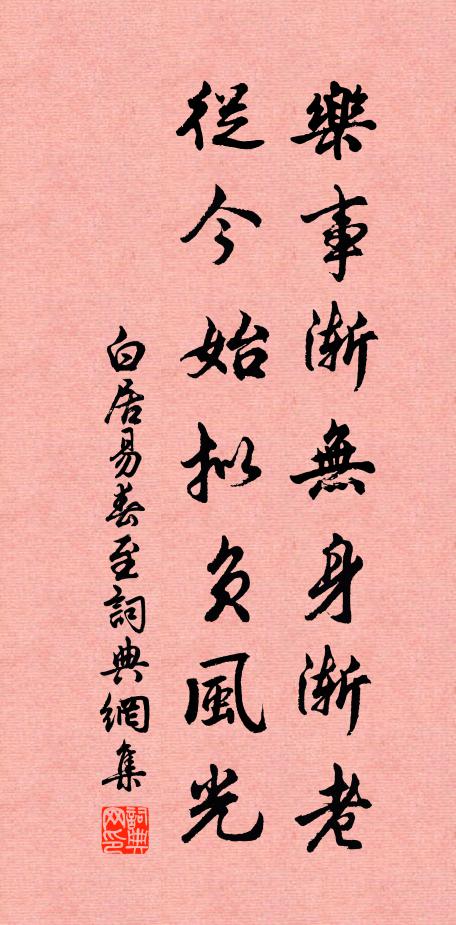 樂事漸無身漸老
從今始拟負風光
白居易春至詞典網集
詞典网印